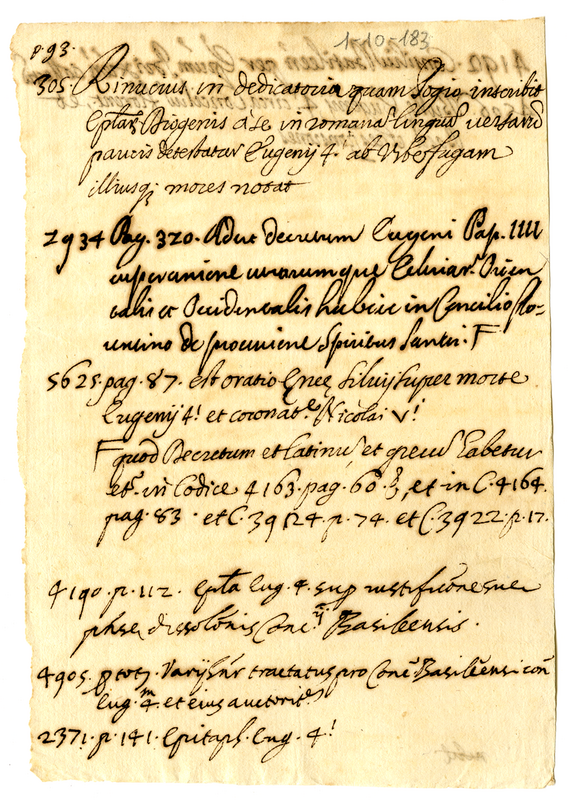 1-10-183
p.93.
305. Rinucius in dedicatoria quam Pogio inscribit
Eptar̄ Diogenis a se in romanā linguā versarū
paucis detestatur Eugenij 4. ab Urbe fugam
illiusq; mores notat
2934 Pag. 320. Adest decretum Eugeni Pap. IIII
super unione utrarumque Ecclesiar. Orien
talis et Occidentalis habite in Concilio Flo-
rentino de processione Spiritus Sancti. F
5625. pag. 87. est oratio Enee Silvij super morte
Eugenij 4.ⁱ et coronat.e Nicolai V.ⁱ
F quod Decretum et latinū et grecū habetur
et. in Codice 4163. pag. 60. et in C. 4164.
pag. 83. et C. 39124. p. 74. et C. 3922. p. 17.
4190. p. 112. Epta Eug. 4. sup iustificōne sue
phse dissolōnis Conc.ij Basileensis.
4905. p totū. Varij sūt tractatus pro Conc. Basileensi con
Eug. 4.m et eius auctorit.
2371. p. 141. Epitaph. Eug. 4.ⁱ